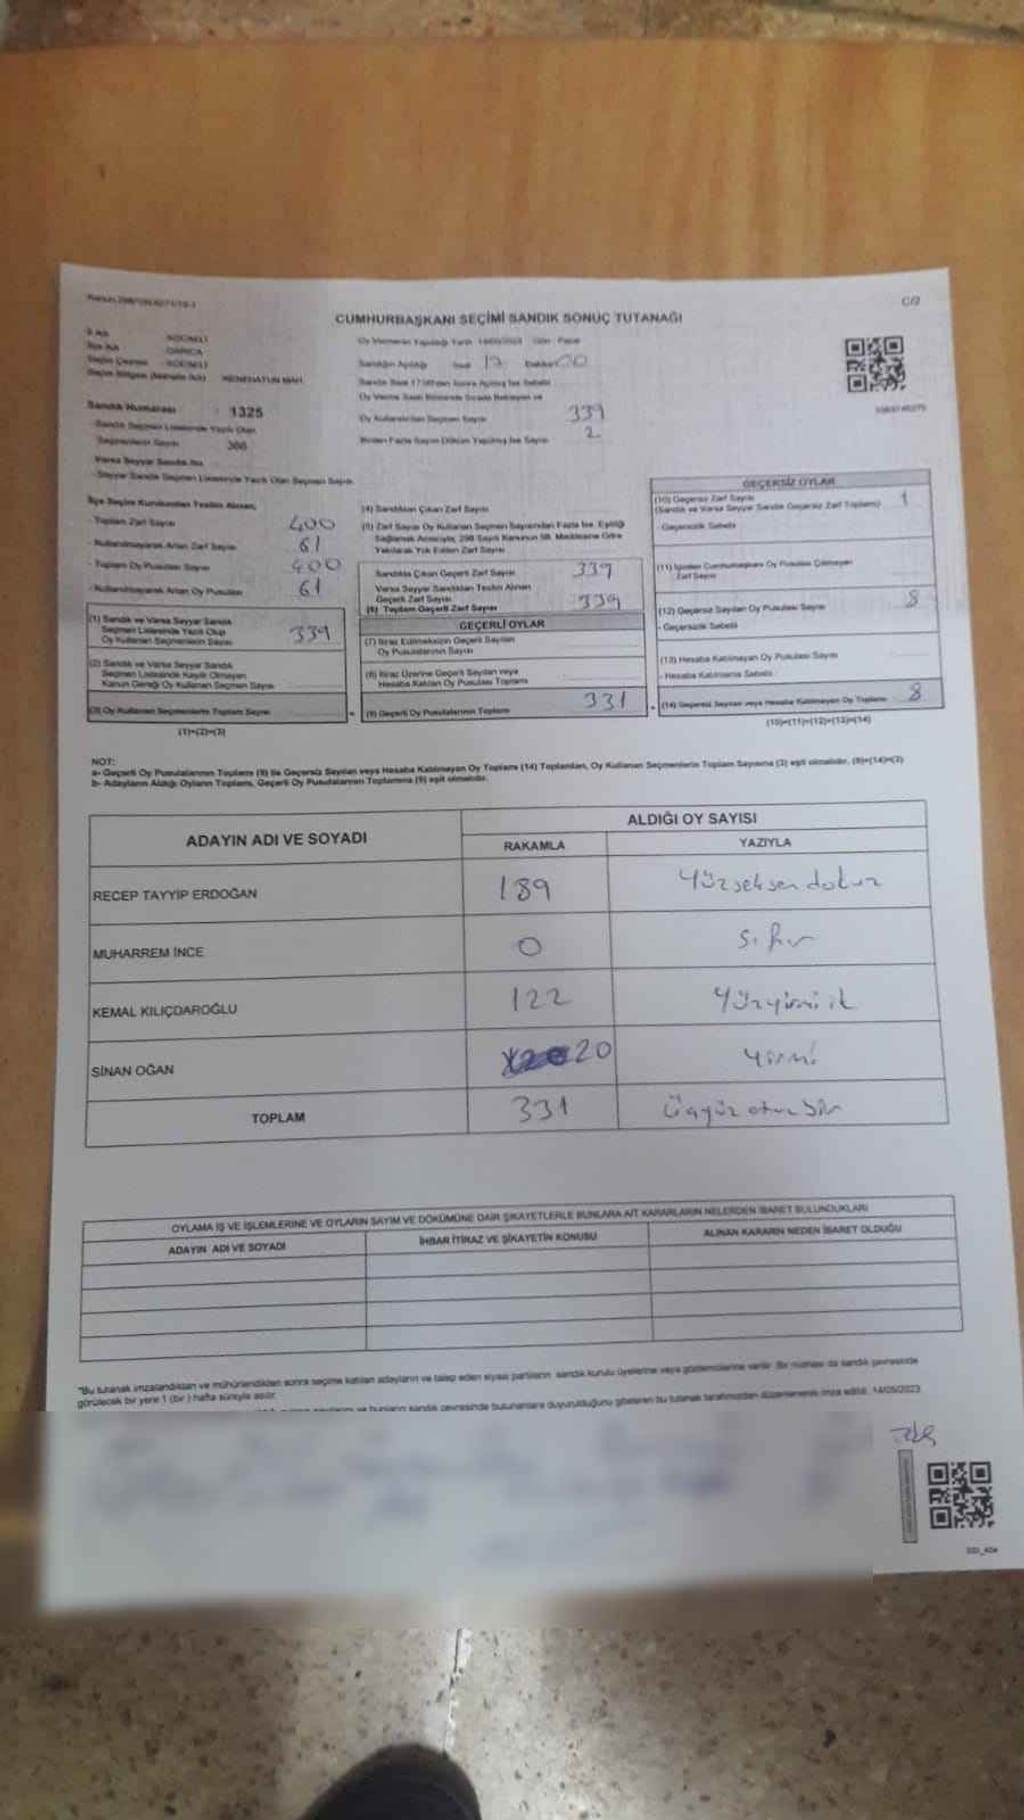 C/2
CUMHURBAŞKANI SEÇİMİ SANDIK SONUÇ TUTANAĞI
İl Adı KOCAELİ
İlçe Adı DARICA
Seçim Çevresi KOCAELİ
Oy Vermenin Yapıldığı Tarih 14/05/2023 Gün Pazar
Sandığın Açıldığı Saat 17 Dakika 00
Sandık Saat 17:00'den Sonra Açılmış İse Sebebi
Sandık Numarası 1325
Oy Kullanılan Seçmen Sayısı 339
Birden Fazla Sayım Döküm Yapılmış İse Sayısı 2
Sandık Seçmen Listesinde Yazılı Olan
Seçmenlerin Sayısı
Varsa Seyyar Sandık No
Seyyar Sandık Seçmen Listesinde Yazılı Olan Seçmen Sayısı
İlçe Seçim Kurulundan Teslim Alınan;
- Toplam Zarf Sayısı 400
- Kullanılmayarak Artan Zarf Sayısı 61
- Toplam Oy Pusulası Sayısı 400
- Kullanılmayarak Artan Oy Pusulası 61
(1) Sandık ve Varsa Seyyar Sandık
Seçmen Listesinde Yazılı Olup
Oy Kullanan Seçmenlerin Sayısı 339
(2) Sandık ve Varsa Seyyar Sandık
Seçmen Listesinde Kayıtlı Olmayan
Kanun Gereği Oy Kullanan Seçmen Sayısı
(3) Oy Kullanan Seçmenlerin Toplam Sayısı
(1)+(2)=(3)
(4) Sandıktan Çıkan Zarf Sayısı
(5) Zarf Sayısı Oy Kullanan Seçmen Sayısından Fazla İse, Eşitliği
Sağlamak Amacıyla, 298 Sayılı Kanunun 98. Maddesine Göre
Yakılarak Yok Edilen Zarf Sayısı
Sandıkta Çıkan Geçerli Zarf Sayısı 339
Varsa Seyyar Sandıktan Teslim Alınan
Geçerli Zarf Sayısı
(6) Toplam Geçerli Zarf Sayısı 339
GEÇERLİ OYLAR
(7) İtiraz Edilmeksizin Geçerli Sayılan
Oy Pusulalarının Sayısı
(8) İtiraz Üzerine Geçerli Sayılan veya
Hesaba Katılan Oy Pusulası Toplamı
(9) Geçerli Oy Pusulalarının Toplamı 331
GEÇERSİZ OYLAR
(10) Geçersiz Zarf Sayısı 1
(Sandık ve Varsa Seyyar Sandık Geçersiz Zarf Toplamı)
- Geçersizlik Sebebi
(11) İçinden Cumhurbaşkanı Oy Pusulası Çıkmayan
Zarf Sayısı
(12) Geçersiz Sayılan Oy Pusulası Sayısı 8
- Geçersizlik Sebebi
(13) Hesaba Katılmayan Oy Pusulası Sayısı
- Hesaba Katılmama Sebebi
(14) Geçersiz Sayılan veya Hesaba Katılmayan Oy Toplamı 8
(10)+(11)+(12)+(13)=(14)
NOT:
a- Geçerli Oy Pusulalarının Toplamı (9) ile Geçersiz Sayılan veya Hesaba Katılmayan Oy Toplamı (14) Toplamları, Oy Kullanan Seçmenlerin Toplam Sayısına (3) eşit olmalıdır. (9)+(14)=(3)
b- Adayların Aldığı Oyların Toplamı, Geçerli Oy Pusulalarının Toplamına (9) eşit olmalıdır.
ADAYIN ADI VE SOYADI ALDIĞI OY SAYISI
RAKAMLA YAZIYLA
RECEP TAYYİP ERDOĞAN 189 Yüzseksendokuz
MUHARREM İNCE 0 Sıfır
KEMAL KILIÇDAROĞLU 122 Yüzyirmi ik
SİNAN OĞAN 20 Yirmi
TOPLAM 331 Üçyüz otuz bir
OYLAMA İŞ VE İŞLEMLERİNE VE OYLARIN SAYIM VE DÖKÜMÜNE DAİR ŞİKAYETLERLE BUNLARA AİT KARARLARIN NELERDEN İBARET BULUNDUKLARI
ADAYIN ADI VE SOYADI İHBAR İTİRAZ VE ŞİKAYETİN KONUSU ALINAN KARARIN NEDEN İBARET OLDUĞU
"Bu tutanak imzalandıktan ve mühürlendikten sonra seçime katılan adayların ve talep eden siyasi partilerin sandık kurulu üyelerine veya gözlemcilerine verilir. Bir nüshası da sandık çevresinde
görülecek bir yere 1 (bir) hafta süreyle asılır.
ve bunların sandık çevresinde bulunanlara duyurulduğunu gösteren bu tutanak tarafımızdan düzenlenerek imza edildi. 14/05/2023